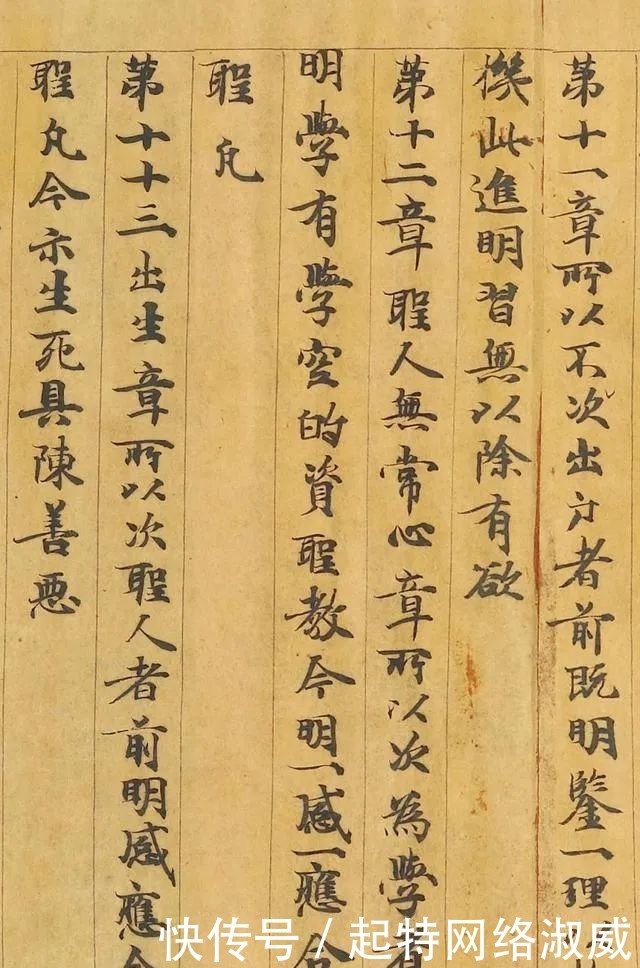 第十一章所以不次出者前既明鑒一理
此進明習無以除有欲
第十二章聖人無常心章所以次為學
明學有學空的資聖教今明一感一應
聖凡
第十十三出生章所以次聖人者前明感應今
聖凡今示生死具陳善惡
快传号/起特网络淑威